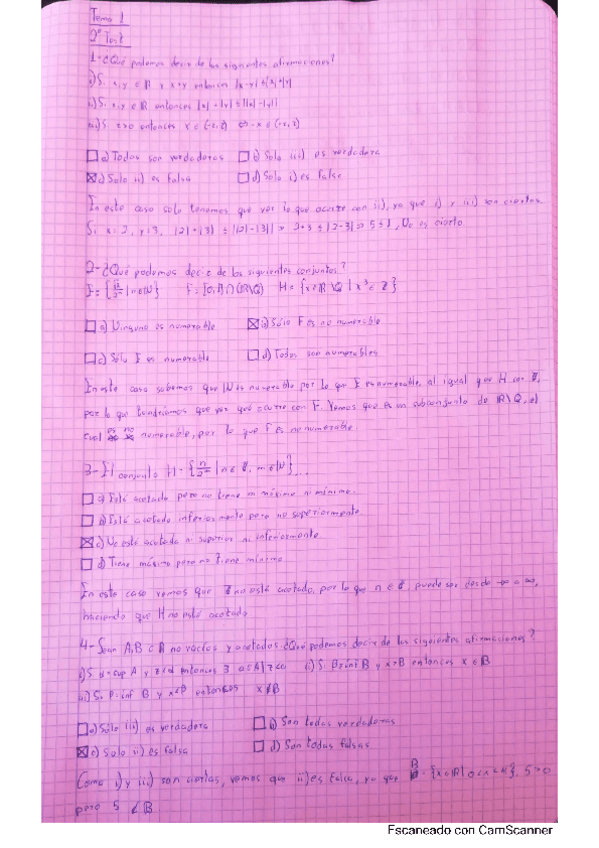 Tema 1
2º Test
1- ¿Qué podemos decir de las siguientes afirmaciones?
i) Si x,y ∈ R x<y entonces |x-y|
ii) Si x,y ∈ R entonces |x| - |y| ≤ ||x| - |y||
iii) Si z>0 entonces x ∈ (-z,z) ⇔ -x ∈ (-z,z)
a) Todas son verdaderas b) Solo iii) es verdadera
c) Solo ii) es falsa d) Solo i) es falsa
En este caso solo tenemos que ver lo que ocurre con ii), ya que i) y iii) son ciertas.
Si x=2, y=3, |2|+|3| ≤ ||2|-|3|| ⇒ 2+3 ≤ |2-3| ⇒ 5≤1, No es cierto
2- ¿Qué podemos decir de los siguientes conjuntos?
F = [0,1]∩(R\Q) H = {x∈R\Q | x³∈Z}
a) Ninguno es numerable b) Sólo F es no numerable
c) Solo E es numerable d) Todos son numerables
En este caso sabemos que N es numerable por lo que E es numerable, al igual que H con
por lo que tendríamos que ver que ocurre con F. Vemos que es un subconjunto de R\Q, el
cual es no numerable, por lo que F es no numerable
3- El conjunto H = {n | n∈ , m∈N}...
a) Está acotado pero no tiene ni máximo ni mínimo.
b) Está acotado inferiormente pero no superiormente
c) No está acotado ni superior ni inferiormente
d) Tiene máximo pero no tiene mínimo
En este caso vemos que Z no está acotado, por lo que n ∈ , puede ser desde -∞ a ∞,
haciendo que H no esté acotado
4- Sean A,B ⊂ R no vacíos y acotados ¿Qué podemos decir de las siguientes afirmaciones?
i) Si α = sup A y z<α entonces ∃ a∈A | z<a ii) Si β=inf B y x>β entonces x ∈ B
iii) Si β=inf B y x<β entonces x∉B
a) Sólo iii) es verdadera b) Son todas verdaderas
c) Solo ii) es falsa d) Son todas falsas
Como i) y iii) son ciertas, vemos que ii) es falsa, ya que B = {x∈R | 0<x<4}, 5>0
pero 5 ∉ B
Escaneado con CamScanner